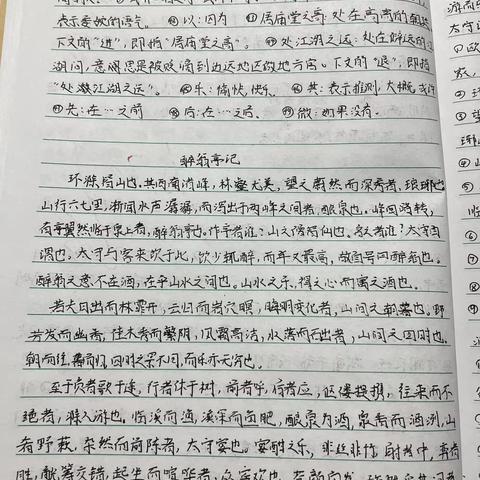 表示委婉的语气。 以:因为 居庙堂之高:处在高高的朝廷
下文的“进”,即指“居庙堂之高”。 处江湖之远:处在僻远的江
湖间,意思是被贬谪到边远地区做地方官。下文的“退”,即指
“处江湖之远”。 乐:愉快,快乐 其:表示推测,大概,或许
先:在…之前 后:在…之后. 微:如果没有.
醉翁亭记
环滁皆山也。其西南诸峰,林壑尤美,望之蔚然而深秀者,琅琊也。
山行六七里,渐闻水声潺潺,而泻出于两峰之间者,酿泉也。峰回路转,
有亭翼然临于泉上者,醉翁亭也。作亭者谁?山之僧智仙也。名之者谁?太守自
谓也。太守与客来饮于此,饮少辄醉,而年又最高,故自号曰醉翁也。
醉翁之意不在酒,在乎山水之间也。山水之乐,得之心而寓之酒也。
若夫日出而林霏开,云归而岩穴暝,晦明变化者,山间之朝暮也。野
芳发而幽香,佳木秀而繁阴,风霜高洁,水落而石出者,山间之四时也。
朝而往,暮而归,四时之景不同,而乐亦无穷也。
至于负者歌于途,行者休于树,前者呼,后者应,伛偻提携,往来而不
绝者,滁人游也。临溪而渔,溪深而鱼肥,酿泉为酒,泉香而酒洌,山
肴野蔌,杂然而前陈者,太守宴也。宴酣之乐,非丝非竹,射者中,弈者
胜,觥筹交错,起坐而喧哗者,众宾欢也。苍颜白发